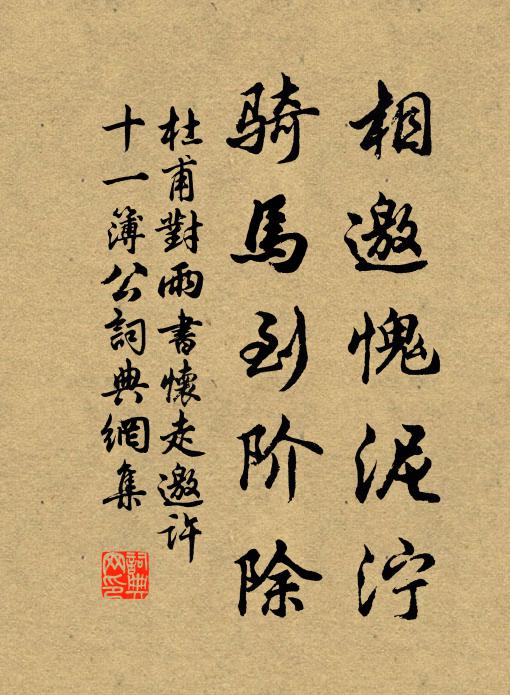 相邀愧泥泞
騎馬到阶除
杜甫對雨書懷走邀許
十一簿公詞典網集
詞典
网印